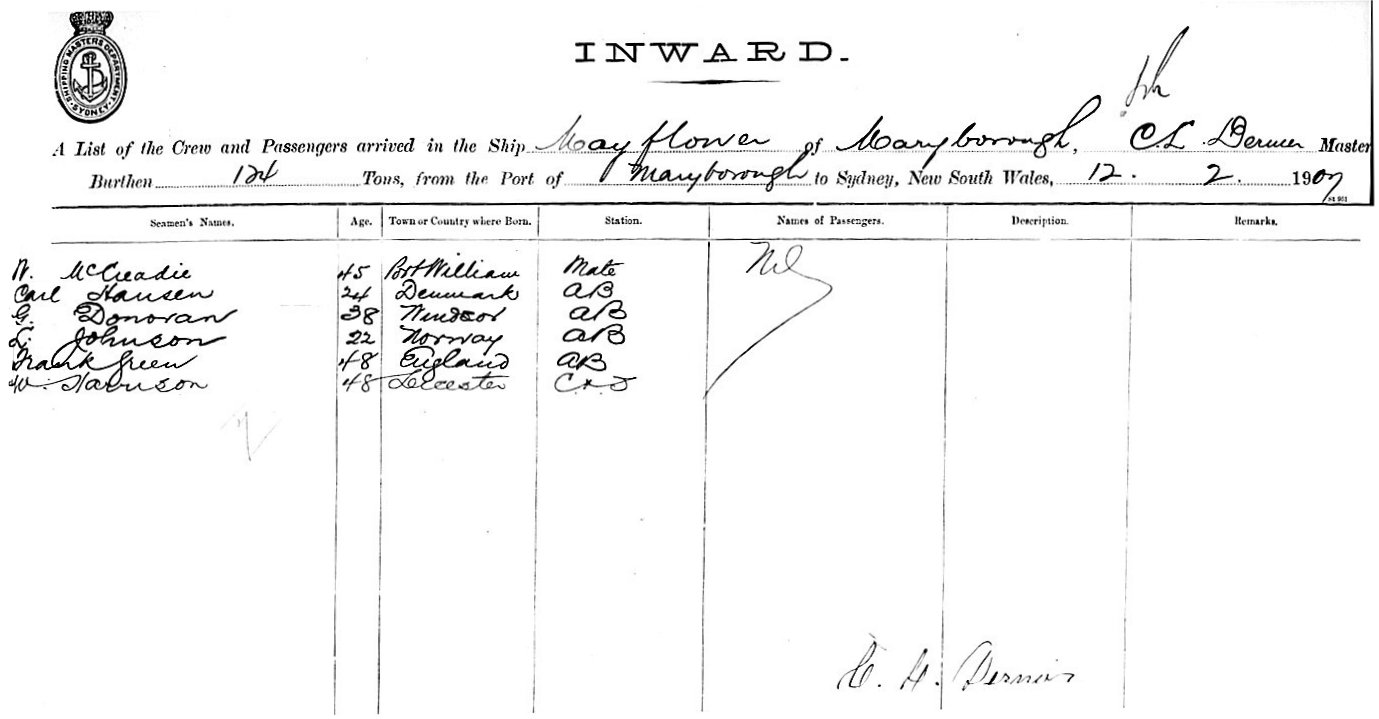 SHIPPING MASTERS DEPARTMENT
SYDNEY
INWARD.
A List of the Crew and Passengers arrived in the Ship Mayflower of Maryborough, C.L. Master
Burthen 124 Tons, from the Port of Maryborough to Sydney, New South Wales, 12. 2. 1907
Seamen's Names. Age. Town or Country where Born. Station. Names of Passengers. Description. Remarks.
W. McCreadie 45 Port William Mate Nil
Carl Hansen 24 Denmark AB
G. Donovan 38 Windsor AB
L. Johnson 22 Norway AB
Frank Green 48 England AB
W. Harrison 48 Leicester C & S